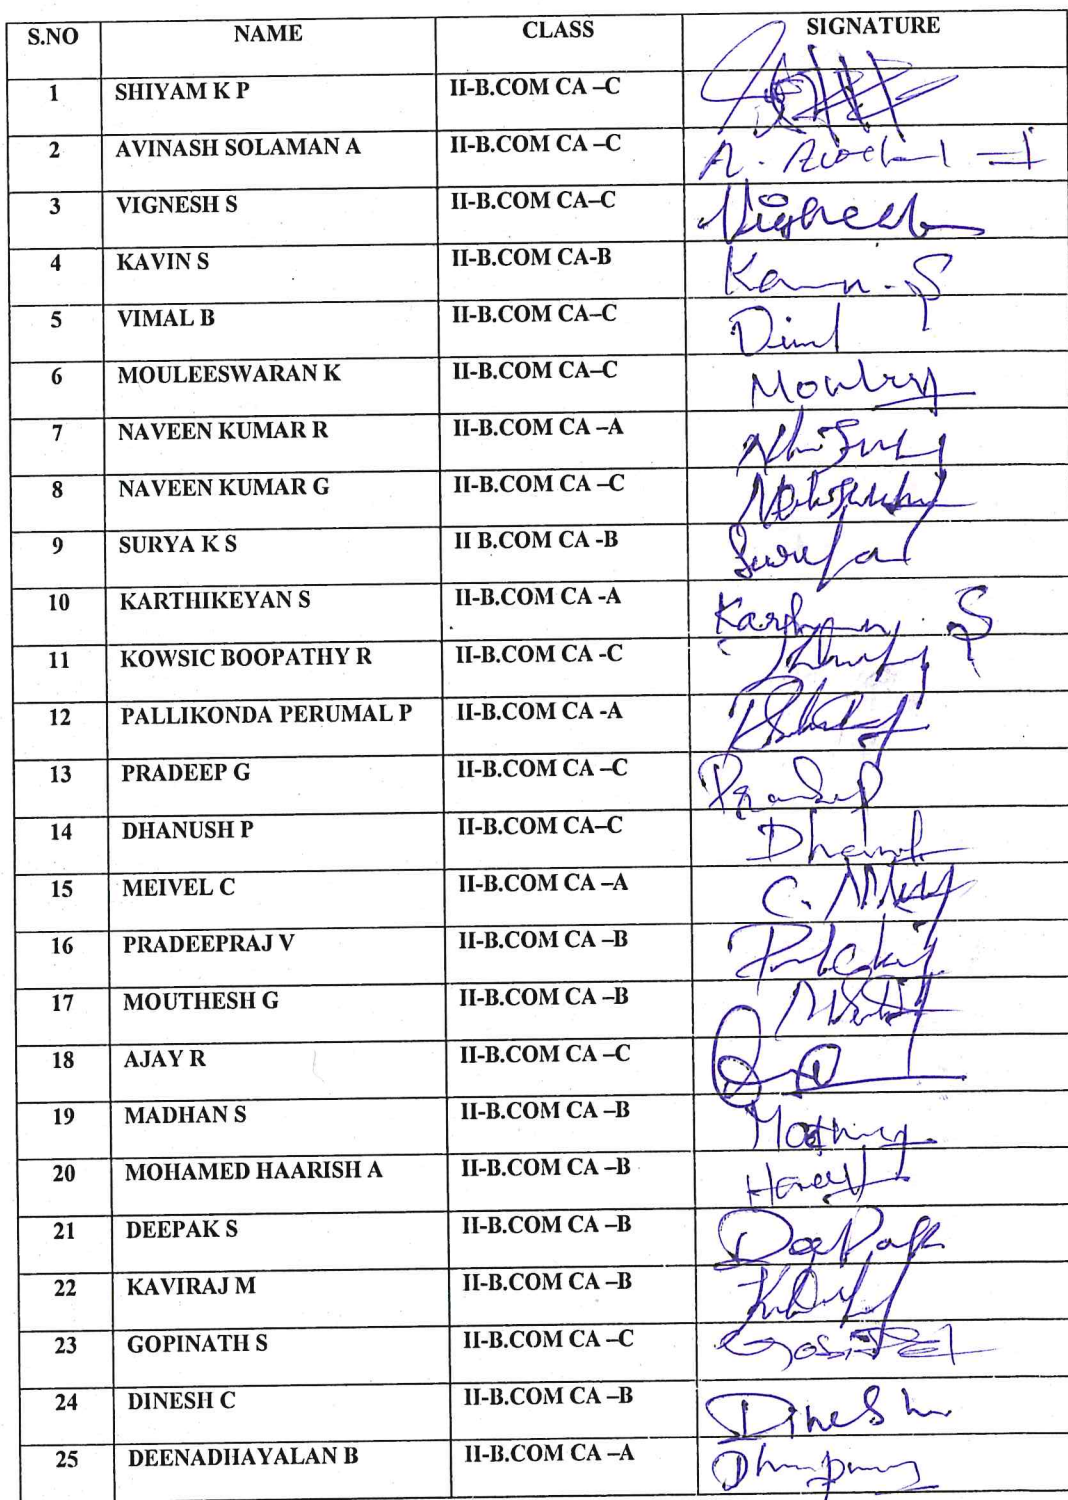 S.NO NAME CLASS SIGNATURE
1 SHIYAM K P II-B.COM CA –C
2 AVINASH SOLAMAN A II-B.COM CA –C
3 VIGNESH S II-B.COM CA–C
4 KAVIN S II-B.COM CA-B
5 VIMAL B II-B.COM CA–C
6 MOULEESWARAN K II-B.COM CA–C
7 NAVEEN KUMAR R II-B.COM CA –A
8 NAVEEN KUMAR G II-B.COM CA –C
9 SURYA K S II B.COM CA -B
10 KARTHIKEYAN S II-B.COM CA -A
11 KOWSIC BOOPATHY R II-B.COM CA -C
12 PALLIKONDA PERUMAL P II-B.COM CA -A
13 PRADEEP G II-B.COM CA –C Pradeep
14 DHANUSH P II-B.COM CA–C
15 MEIVEL C II-B.COM CA –A
16 PRADEEPRAJ V II-B.COM CA –B
17 MOUTHESH G II-B.COM CA –B
18 AJAY R II-B.COM CA –C
19 MADHAN S II-B.COM CA –B
20 MOHAMED HAARISH A II-B.COM CA –B
21 DEEPAK S II-B.COM CA –B Deepak
22 KAVIRAJ M II-B.COM CA –B
23 GOPINATH S II-B.COM CA –C
24 DINESH C II-B.COM CA –B Dinesh
25 DEENADHAYALAN B II-B.COM CA –A